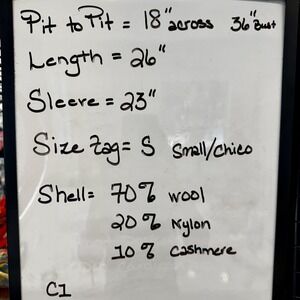 Pit to Pit = 18" across 36" Bust
Length = 26"
Sleeve = 23"
Size Tag = S Small/Chico
Shell = 70% wool
20% Nylon
10% Cashmere
C1